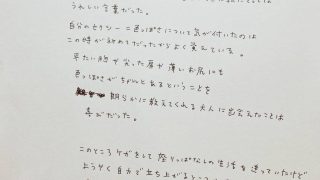 うれしい言葉だった。
自分のセクシー二色っぽさについて気が付いたのは
この時が初めてだったからよく覚えている。
平たい胸が尖った肩が薄いお尻にも
色っぽさがちゃんとあるということを
朗らかに教えてくれる大人に出会えたことは
幸せだった。
このところケガをして座りっぱなしの生活を送っていたけど
ようやく自力で立ち上がるところ